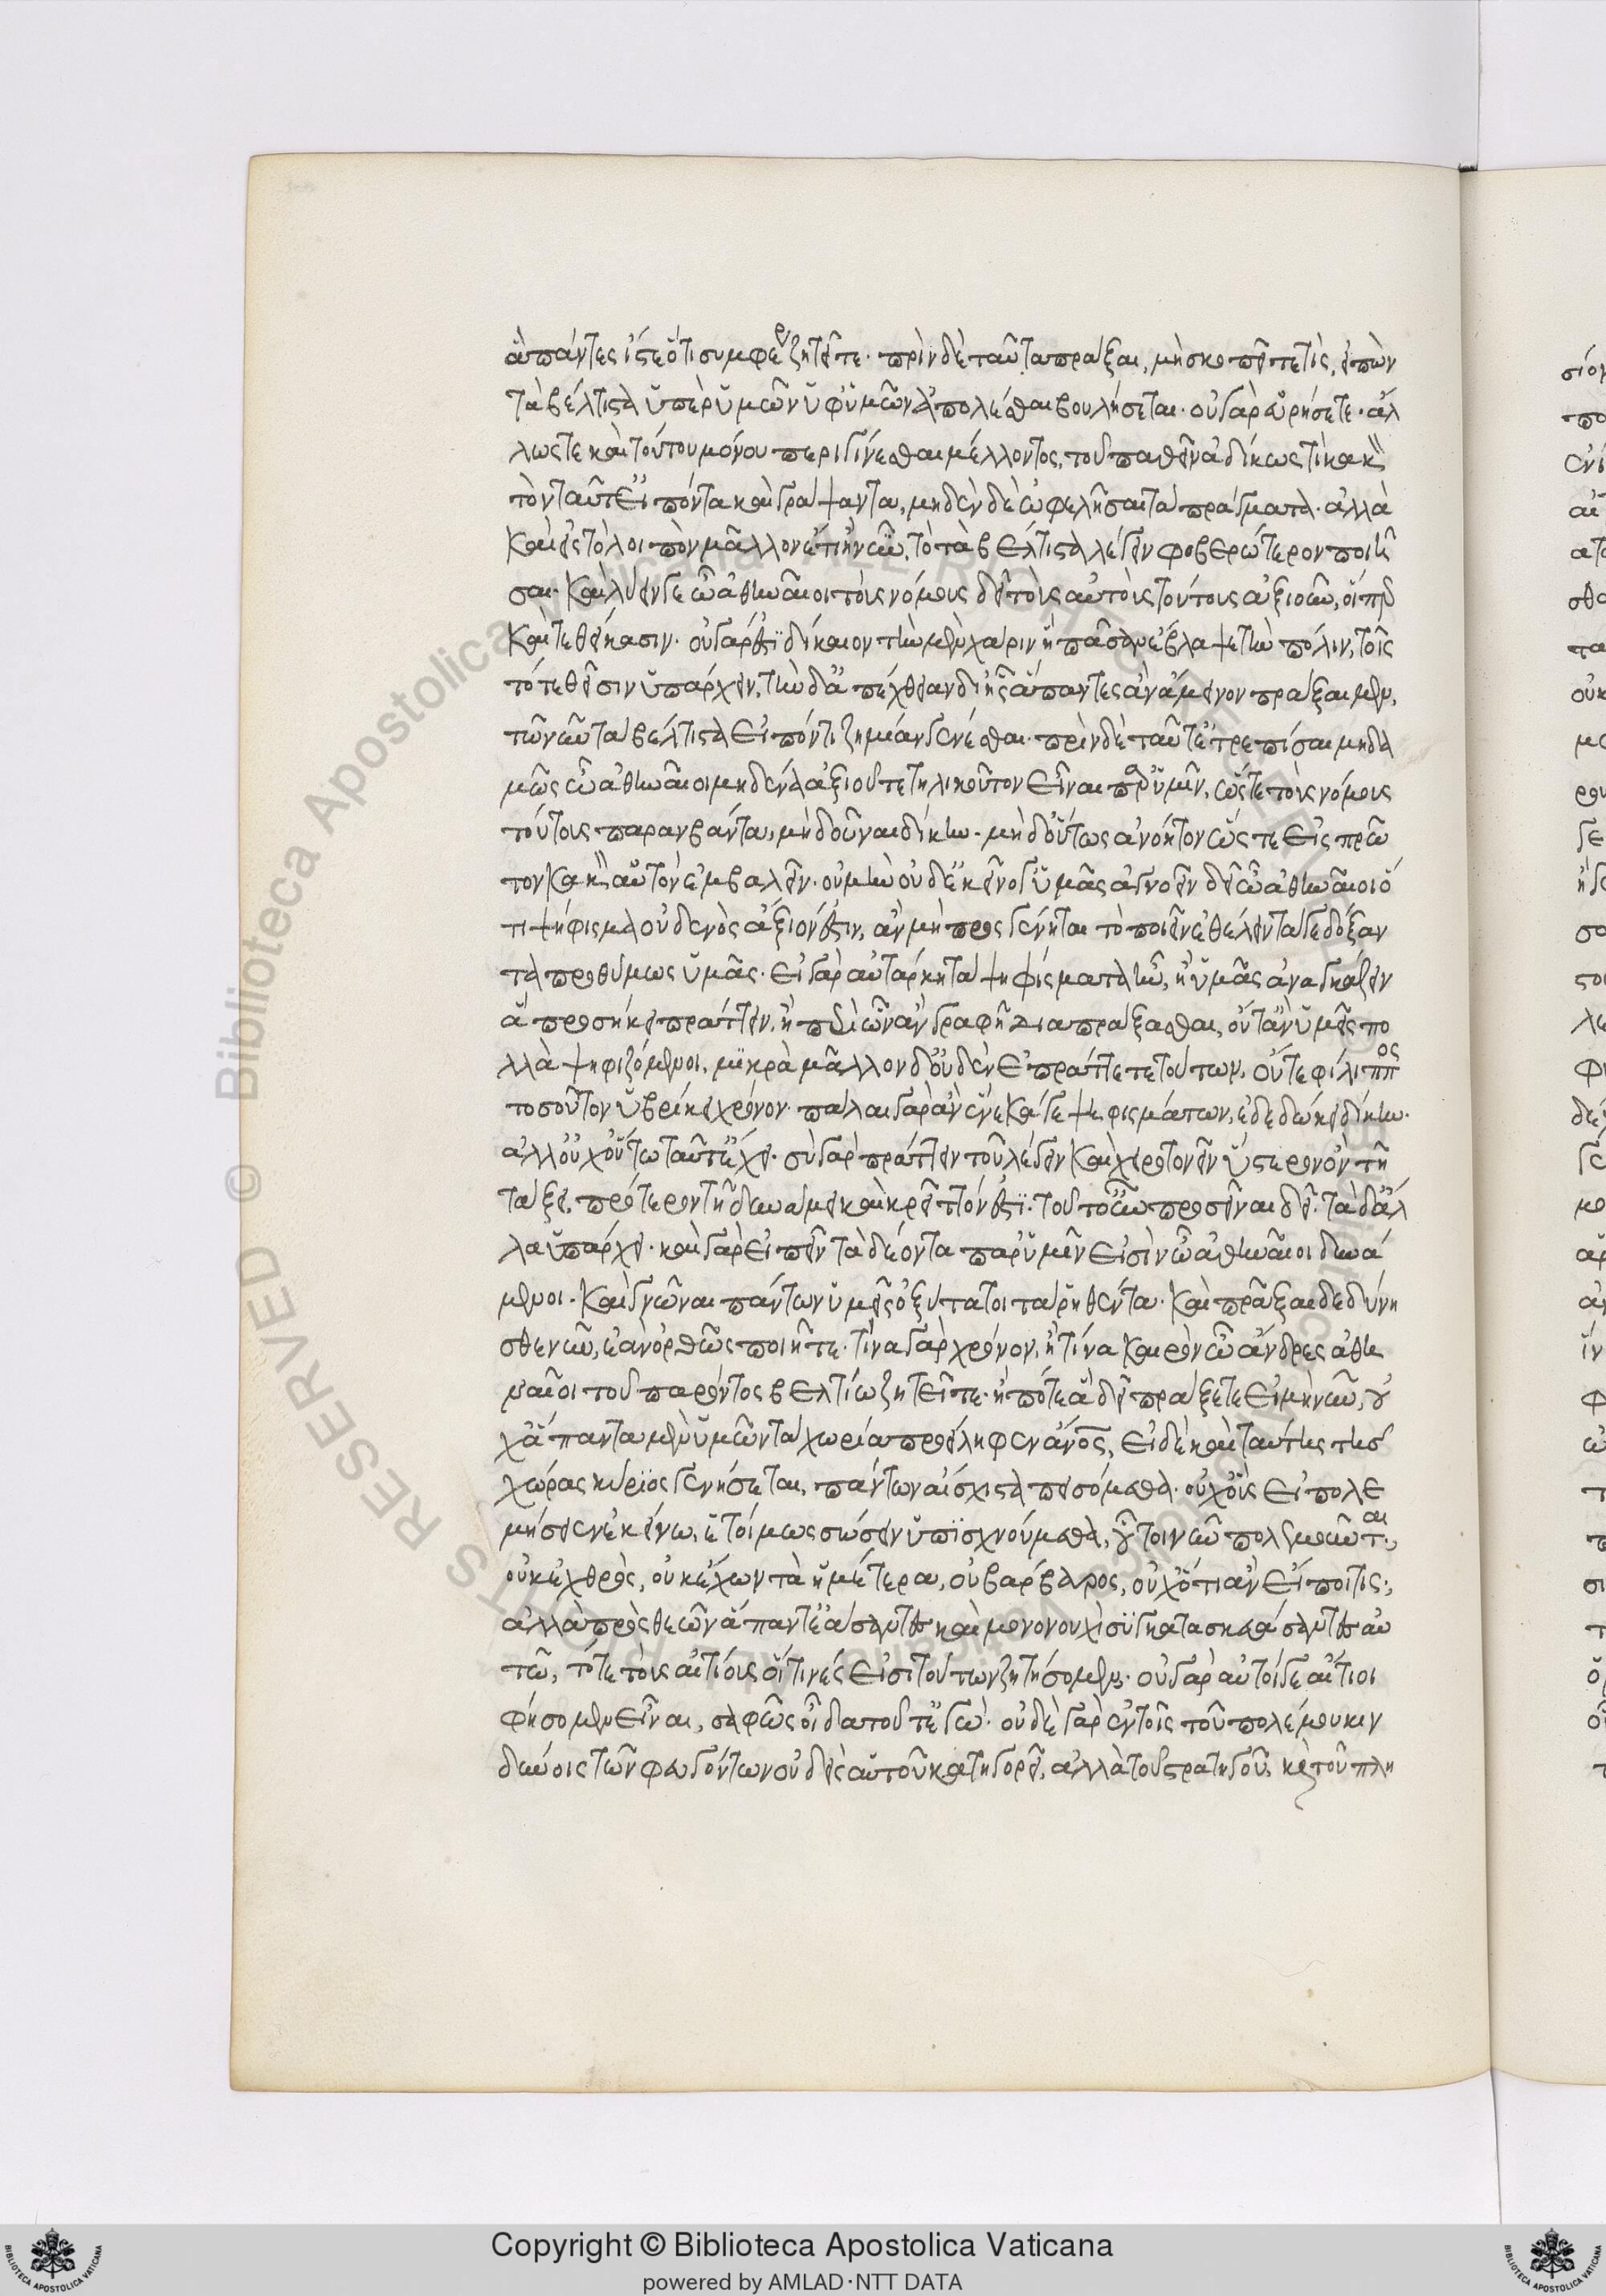 ἅπαντες ἴστε ὅτι συμφέρει ζητεῖτε. πρὶν δὲ ταῦτα πρᾶξαι, μὴ σκοπεῖτε τίς, εἰπὼν
τὰ βέλτιστα ὑπὲρ ὑμῶν ὑφ' ὑμῶν ἀπολέσθαι βουλήσεται. οὐ γὰρ εὑρήσετε. ἄλ
λως τε καὶ τούτου μόνου περιγίνεσθαι μέλλοντος, τοῦ παθεῖν ἀδίκως τί κακὸν
τὸν ταῦτ' εἰπόντα καὶ γράψαντα, μηδὲν δὲ ὠφελῆσαι τὰ πράγματα. ἀλλὰ
καὶ ἐς τὸ λοιπὸν μᾶλλον ἔτι ἢ νῦν, τὸ τὰ βέλτιστα λέγειν φοβερώτερον ποιῆ
σαι. καὶ λύειν γε ὦ ἀθηναῖοι τοὺς νόμους δεῖ τοὺς αὐτοὺς τούτους ἀξιοῦν, οἵπερ
καὶ τεθείκασιν. οὐ γάρ ἐστι δίκαιον τὴν μὲν χάριν ἣ πᾶσαν ἔβλαψε τὴν πόλιν, τοῖς
τότε θεῖσιν ὑπάρχειν, τὴν δ' ἀπέχθειαν δι' ἧς ἅπαντες ἂν ἄμεινον πράξαιμεν,
τῶν νῦν τὰ βέλτιστα εἰπόντι ζημίαν γενέσθαι. πρὶν δὲ ταῦτ' εὐτρεπίσαι μηδα
μῶς ὦ ἀθηναῖοι μηδένα ἀξιοῦτε τηλικοῦτον εἶναι παρ' ὑμῖν, ὥστε τοὺς νόμους
τούτους παραβάντα, μὴ δοῦναι δίκην. μὴ δ' οὕτως ἀνόητον ὥς τε εἰς πρῶ
τον κακὸν αὑτὸν ἐμβαλεῖν. οὐ μὴν οὐδ' ἐκεῖνό γ' ὑμᾶς ἀγνοεῖν δεῖ ὦ ἀθηναῖοι ὅ
τι ψήφισμα οὐδενὸς ἄξιόν ἐστιν, ἂν μὴ προσγένηται τὸ ποιεῖν ἐθέλειν τά γε δόξαν
τα προθύμως ὑμᾶς. εἰ γὰρ αὐτάρκη τὰ ψηφίσματα ἦν, ἢ ὑμᾶς ἀναγκάζειν
ἃ προσήκει πράττειν, ἢ περὶ ὧν ἂν γραφῇ διαπράξασθαι, οὔτ' ἂν ὑμεῖς πο
λλὰ ψηφιζόμενοι, μικρὰ μᾶλλον δ' οὐδὲν ἐπράττετε τούτων, οὔτε φίλιππος
τοσοῦτον ὑβρίκει χρόνον. πάλαι γὰρ ἂν ἕνεκά γε ψηφισμάτων, ἐδεδώκει δίκην.
ἀλλ' οὐχ οὕτω ταῦτ' ἔχει. σὺ γὰρ πράττειν τοῦ λέγειν καὶ χειροτονεῖν ὕστερον ὂν τῇ
τάξει, πρότερον τῇ δυνάμει καὶ κρεῖττόν ἐστι. τοῦτ' οὖν προσεῖναι δεῖ. τὰ δ' ἄλ
λα ὑπάρχει. καὶ γὰρ εἰπεῖν τὰ δέοντα παρ' ὑμῖν εἰσὶν ὦ ἀθηναῖοι δυνά
μενοι. καὶ γνῶναι πάντων ὑμεῖς ὀξύτατοι τὰ ῥηθέντα. καὶ πρᾶξαι δὲ δύνη
σθε νῦν, ἐὰν ὀρθῶς ποιῆτε. τίνα γὰρ χρόνον, ἢ τίνα καιρὸν ὦ ἄνδρες ἀθη
ναῖοι τοῦ παρόντος βελτίω ζητεῖτε. ἢ πότε ἃ δεῖ πράξετε εἰ μὴ νῦν, οὐ
χ' ἅπαντα μὲν ὑμῶν τὰ χωρία προείληφεν ἅνος, εἰ δὲ καὶ ταύτης τῆς
χώρας κύριος γενήσεται, πάντων αἴσχιστα πεισόμεθα. οὐχ οἷς εἰ πολε
μήσειεν ἐκείνω, ἑτοίμως σώσειν ὑπισχνούμεθα, οὗτοι νῦν πολεμοῦνται;
οὐκ ἐχθρὸς, οὐκ ἔχων τὰ ἡμέτερα, οὐ βάρβαρος, οὐχ ὅ τι ἂν εἴποι τις;
ἀλλὰ πρὸς θεῶν ἅπαντ' ἐάσαντες καὶ μονονουχὶ συγκατασκευάσαντες αὐ
τῶ, τότε τοὺς αἰτίους οἵτινές εἰσι τούτων ζητήσομεν. οὐ γὰρ αὐτοί γε αἴτιοι
φήσομεν εἶναι, σαφῶς οἶδα τοῦτ' ἐγώ. οὐδὲ γὰρ ἐν τοῖς τοῦ πολέμου κιν
δύνοις τῶν φευγόντων οὐδεὶς αὑτοῦ κατηγορεῖ, ἀλλὰ τοῦ στρατηγοῦ, καὶ τοῦ πλη